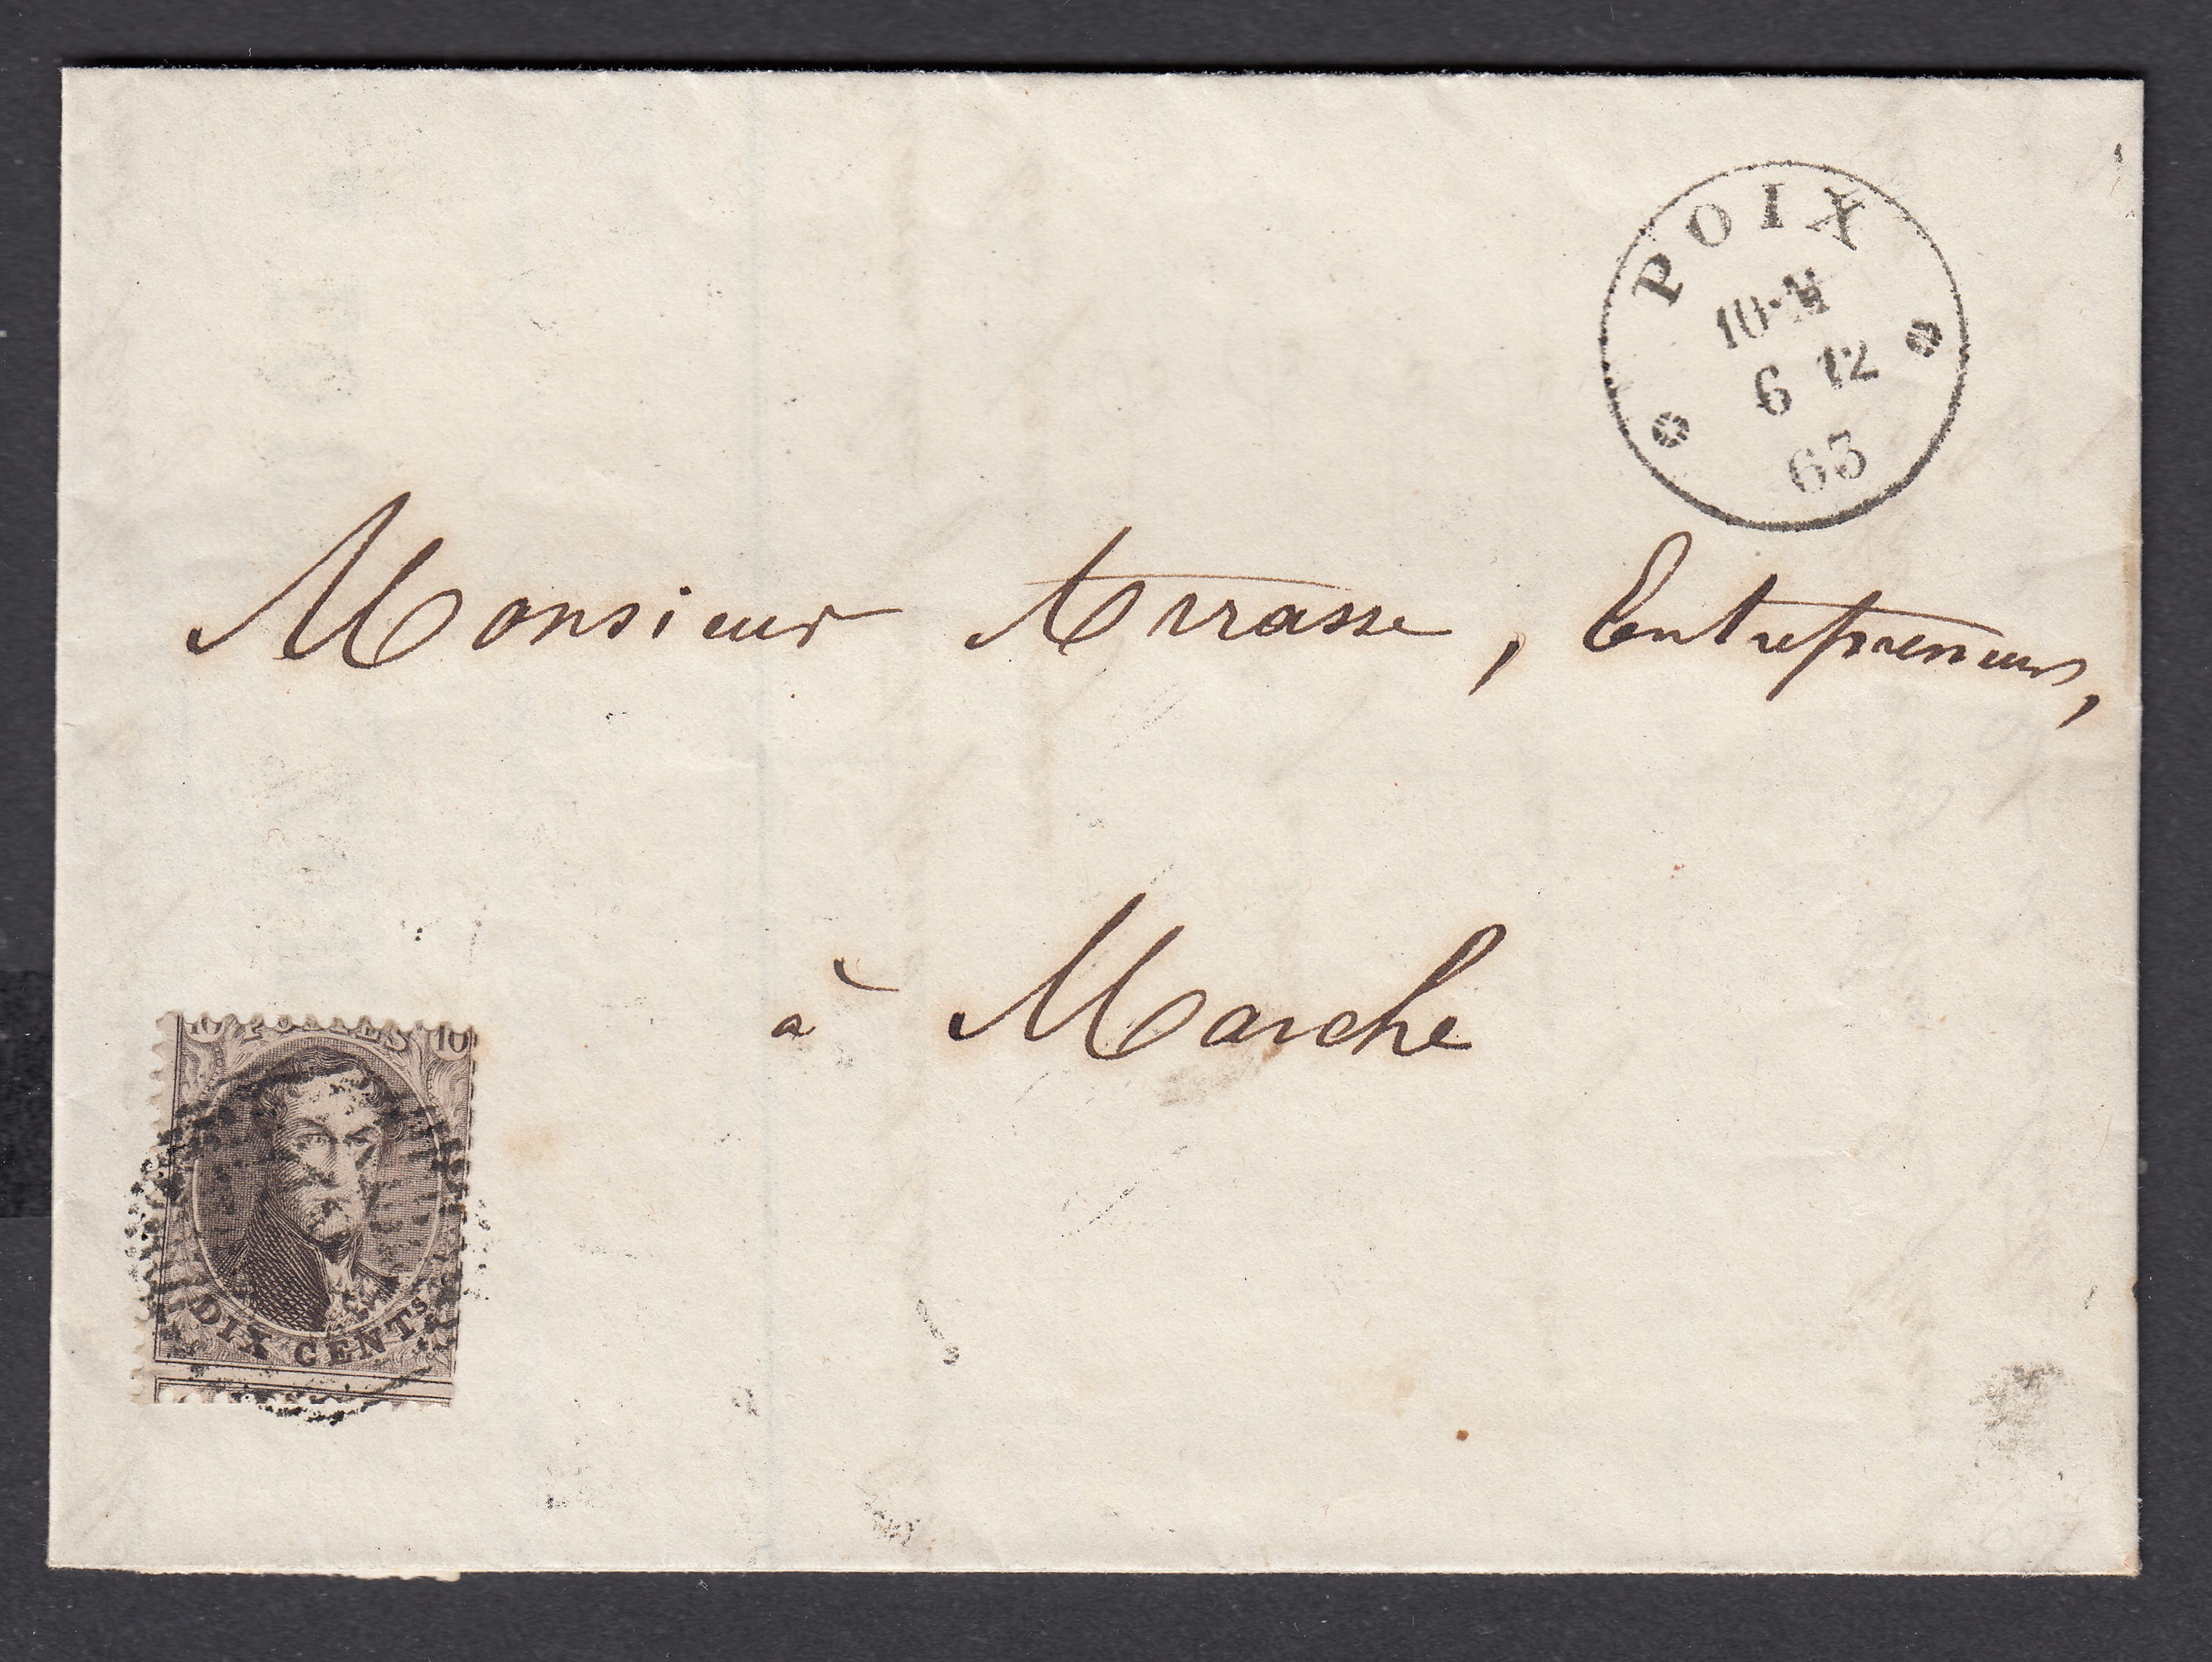 POIX
10-M
6 12
63
Monsieur Arrasse, Entrepreneur,
à Marche
10 POSTES 10
DIX CENTS